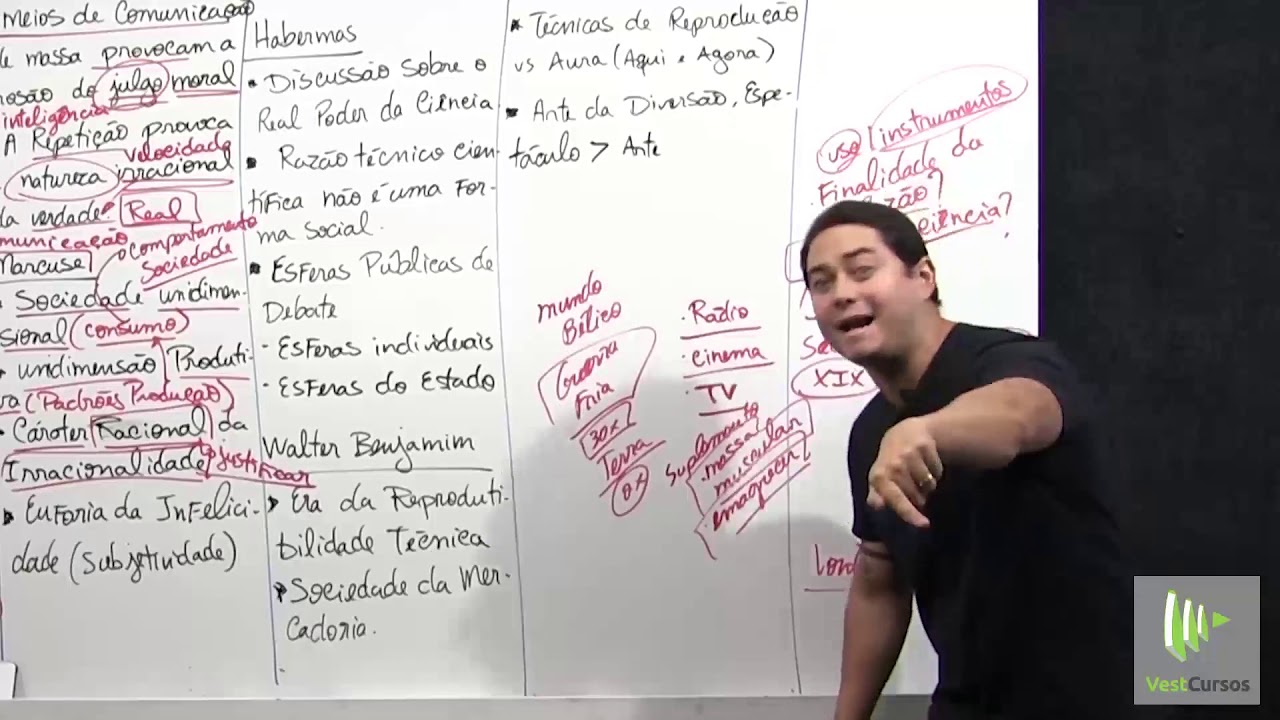 meios de Comunicação
de massa provocam a
rosão do julgo moral
inteligência
A Repetição provoca
velocidade
natureza irracional
da verdade? Real
municação
o comportamento
Marcuse
sociedade
Sociedade unidimen-
sional (consumo)
unidimensão Produti-
va (Padrões Produção)
Cároter Racional da
Irracionalidade justificar
Euforia da Infelici-
dade (Subjetividade)
Habermas
Discussão sobre o
Real Poder da Ciência
Razão técnico cien-
tífica não é uma For-
ma social.
Esferas Públicas de
Debate
- Esferas individuais
- Esferas do Estado
Walter Benjamim
Era da Reproduti-
bilidade Técnica
Sociedade da Mer-
cadoria.
Técnicas de Reprodução
vs Aura (Aqui e Agora)
Arte da Diversão, Espe-
táculo > Arte
mundo
Bélico
Guerra
Fria
30x
Terra
0x
. Rádio
. cinema
. TV
Suplemento
massa
muscular
emagrecer
uso instrumentos
Finalidade da
Razão?
ciência?
XIX
VestCursos